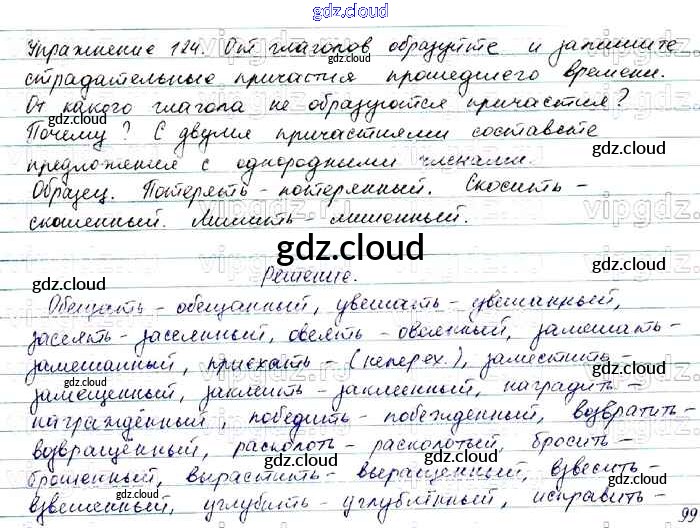 gdz.cloud
Упражнение 124. От глаголов образуйте и запишите
страдательные причастия прошедшего времени.
От какого глагола не образуются причастия?
Почему? С двумя причастиями составьте
предложения с однородными членами.
Образец. Потерять - потерянный. Скосить -
скошенный. Лишить - лишенный.
gdz.cloud
Решение.
Обещать - обещанный, увешать - увешанный,
засеять - засеянный, овеять - овеянный, замешать -
замешанный, приехать - (неперех.), заместить -
замещенный, заклеить - заклеенный, наградить -
награждённый, победить - побежденный, возвратить -
возвращённый, расколоть - расколотый, бросить -
брошенный, вырастить - выращенный, взвесить -
взвешенный, углубить - углублённый, исправить -
99